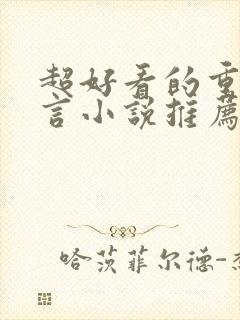 超好看的重
言小说推薦
哈茨菲尔德-杰